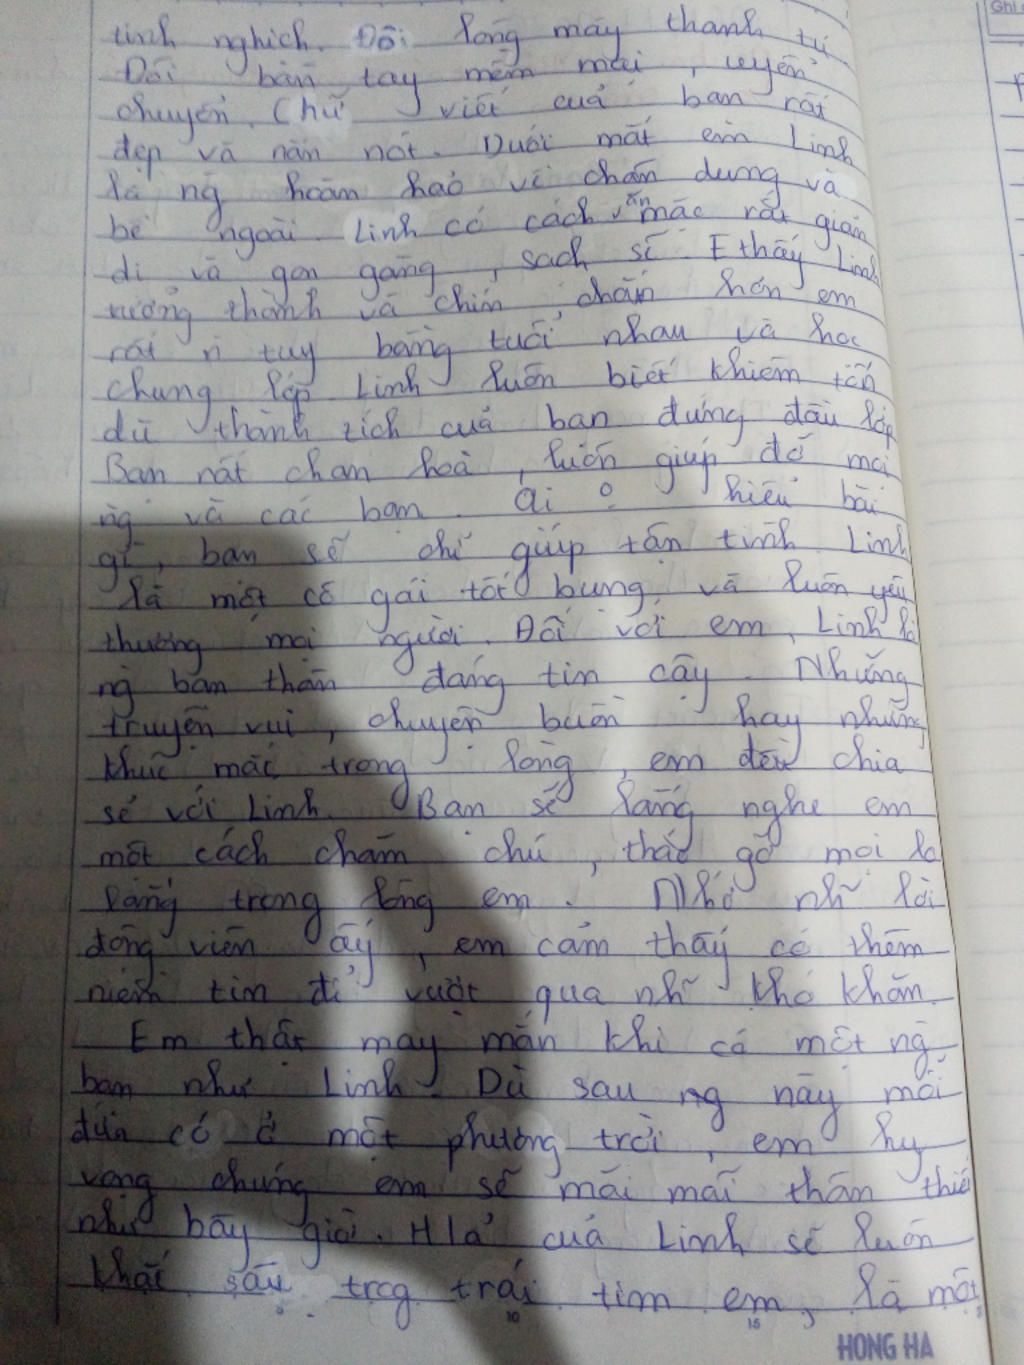 tinh nghịch. Đôi lông mày thanh tú
Đôi bàn tay mềm mại, uyển
chuyển. Chữ viết của bạn rất
đẹp và nắn nót. Dưới mắt em Linh
là ng hoàn hảo về chân dung và
bề ngoài. Linh có cách ăn mặc rất giản
dị và gọn gàng, sạch sẽ. E thấy Linh
trưởng thành và chín chắn hơn em
rất n tuy bằng tuổi nhau và học
chung lớp Linh luôn biết khiêm tốn
dù thành tích của bạn đứng đầu lớp
Bạn rất chan hoà, luôn giúp đỡ mọi
ng và các bạn. Ai o hiểu bài
gì, bạn sẽ chỉ giúp tận tình. Linh
là một cô gái tốt bụng và luôn yêu
thương mọi người. Đối với em, Linh là
ng bạn thân đáng tin cậy. Những
truyện vui, chuyện buồn hay những
khúc mắc trong lòng, em đều chia
sẻ với Linh. Bạn sẽ lắng nghe em
một cách chăm chú, tháo gỡ mọi lo
lắng trong lòng em. Nhờ nh~ lời
động viên ấy, em cảm thấy có thêm
niềm tin để vượt qua nh~ khó khăn.
Em thật may mắn khi có một ng
bạn như Linh. Dù sau ng này mỗi
đứa có ở một phương trời, em hy
vọng chúng em sẽ mãi mãi thân thiết
như bây giờ. H/ả của Linh sẽ luôn
khắc sâu trog trái tim em, là một
10
15
HONG HA